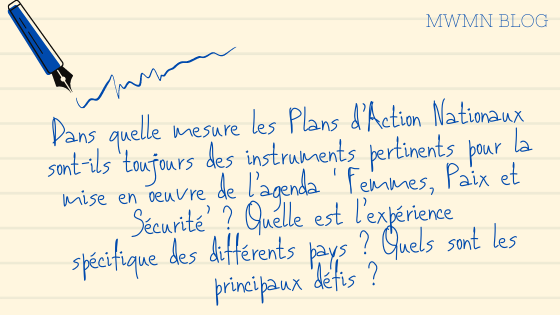 MWMN BLOG
Dans quelle mesure les Plans d'Action Nationaux
sont-ils toujours des instruments pertinents pour la
mise en oeuvre de l'agenda ' Femmes, Paix et
Sécurité' ? Quelle est l'expérience
spécifique des différents pays ? Quels sont les
principaux défis ?